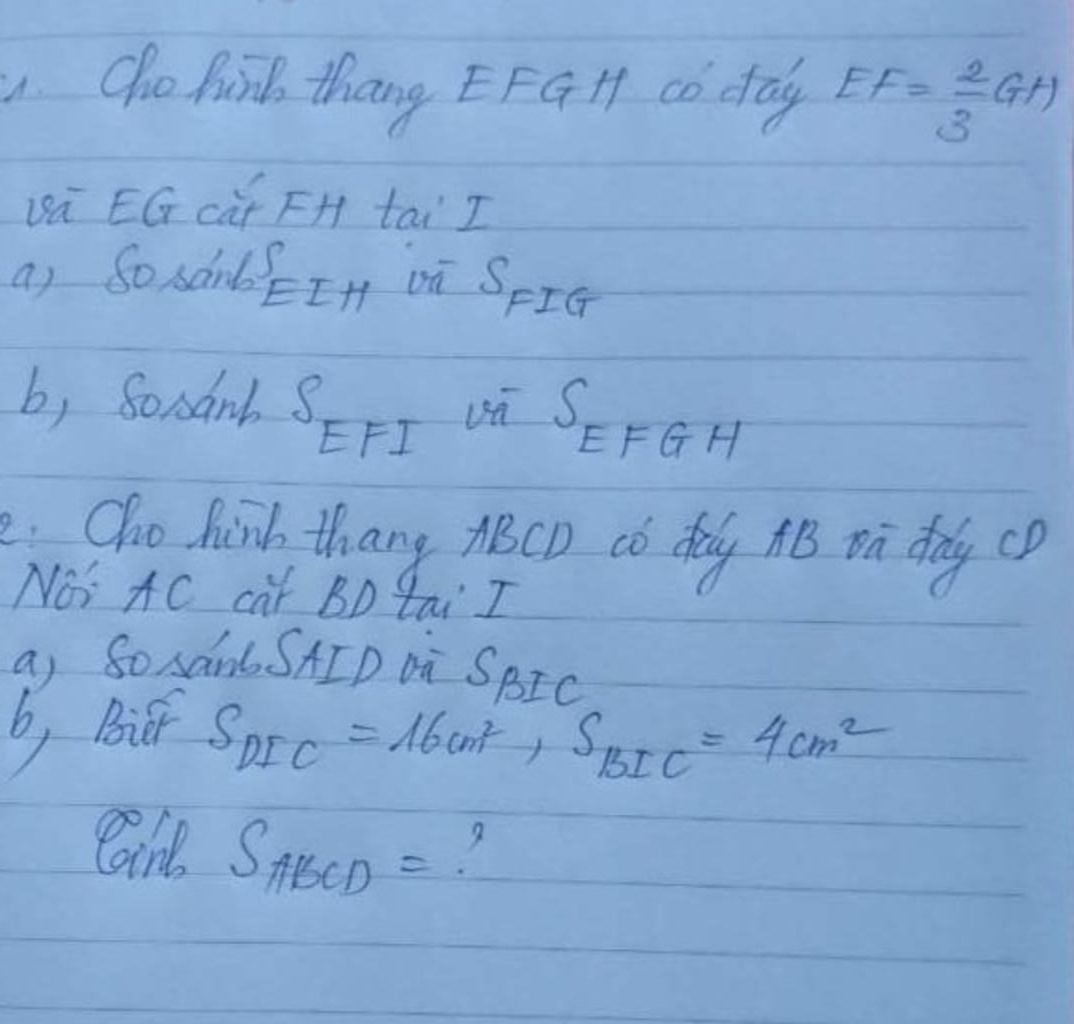 1. Cho hình thang EFGH có đáy EF = 2/3 GH
và EG cắt FH tại I
a) So sánh S EIH và S FIG
b, So sánh S EFI và S EFGH
2. Cho hình thang ABCD có đáy AB và đáy CD
Nối AC cắt BD tại I
a) So sánh SAID và S BIC
b, Biết S DIC = 16cm², S BIC = 4cm²
Tính S ABCD = ?